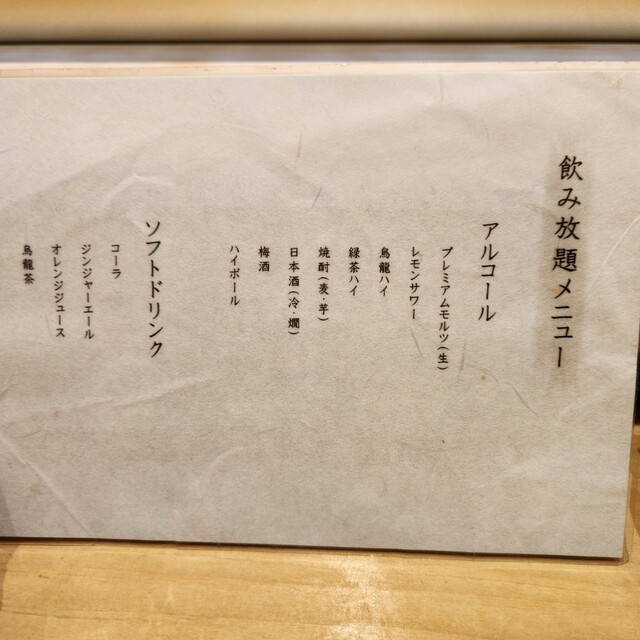 飲み放題メニュー
アルコール
プレミアムモルツ(生)
レモンサワー
烏龍ハイ
緑茶ハイ
焼酎(麦・芋)
日本酒(冷・燗)
梅酒
ハイボール
ソフトドリンク
コーラ
ジンジャーエール
オレンジジュース
烏龍茶